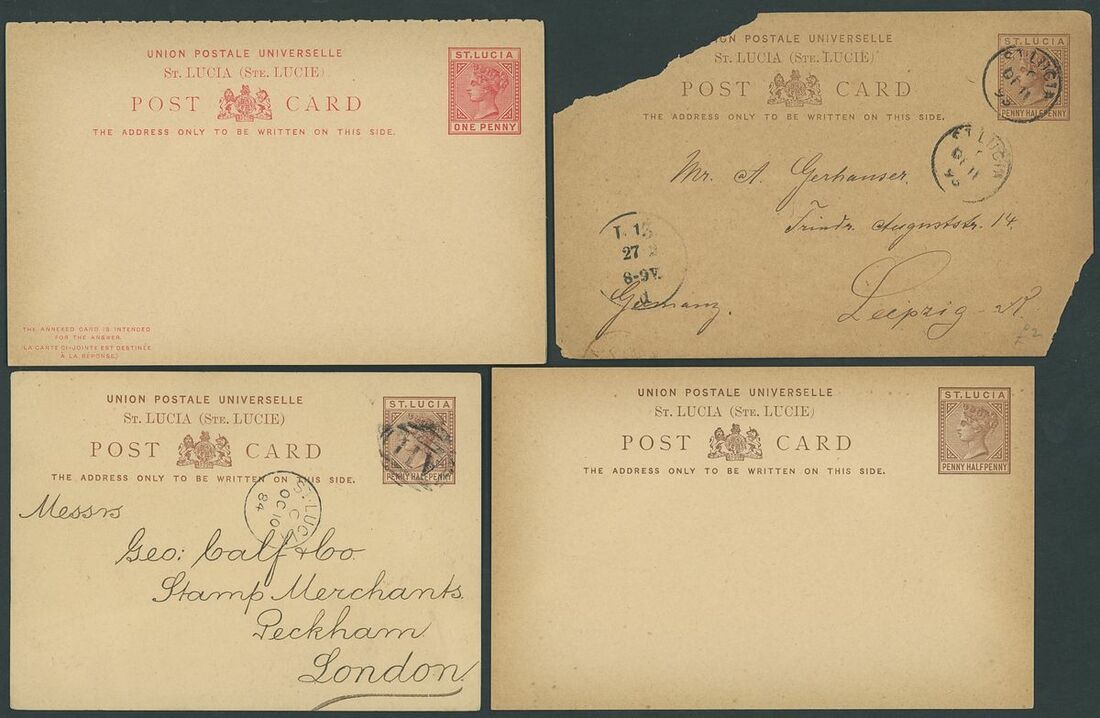 UNION POSTALE UNIVERSELLE
ST. LUCIA (STE. LUCIE)
POST CARD
THE ADDRESS ONLY TO BE WRITTEN ON THIS SIDE.
ST. LUCIA
ONE PENNY
THE ANNEXED CARD IS INTENDED
FOR THE ANSWER.
(LA CARTE CI-JOINTE EST DESTINÉE
À LA RÉPONSE.)
POSTALE UNIVERSELLE
ST. LUCIA (STE. LUCIE)
POST CARD
THE ADDRESS ONLY TO BE WRITTEN ON THIS SIDE.
ST. LUCIA
PENNY HALFPENNY
ST. LUCIA
DE 11
ST. LUCIA
DE 11
Mr. A. Gerhanser.
Auguststr. 14.
27
8-9V.
Germany.
Leipzig
£2
UNION POSTALE UNIVERSELLE
ST. LUCIA (STE. LUCIE)
POST CARD
THE ADDRESS ONLY TO BE WRITTEN ON THIS SIDE.
ST. LUCIA
PENNY HALFPENNY
ST. LUCIA
C
OC 10
84
Messrs
Geo: Calf & Co
Stamp Merchants
Peckham
London
UNION POSTALE UNIVERSELLE
ST. LUCIA (STE. LUCIE)
POST CARD
THE ADDRESS ONLY TO BE WRITTEN ON THIS SIDE.
ST. LUCIA
PENNY HALFPENNY